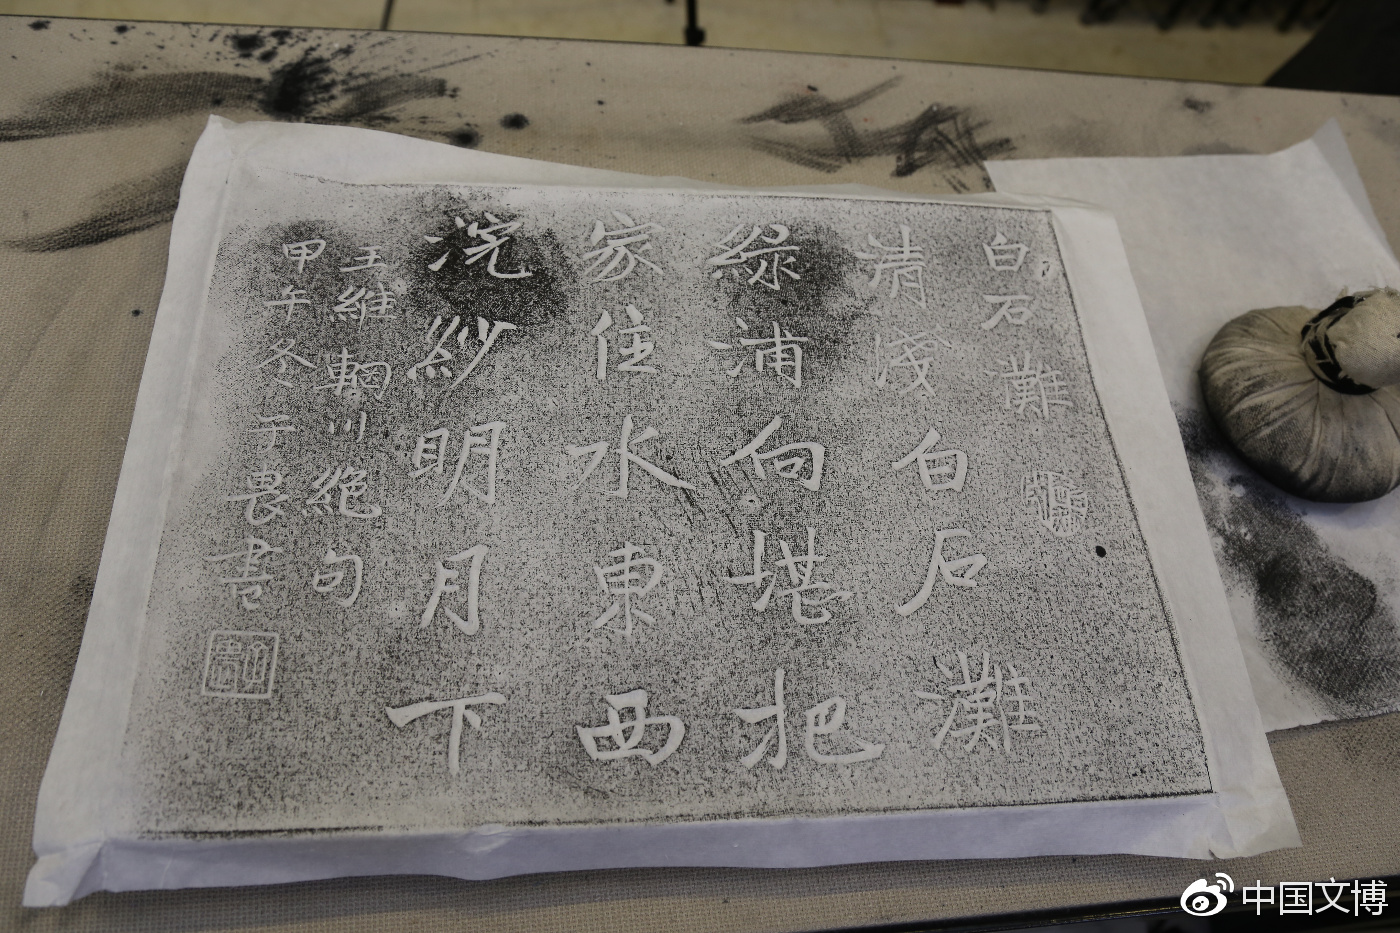 白石灘
清淺白石灘
綠浦向堪把
家住水東西
浣紗明月下
王維輞川絕句
甲午冬于畏書
中国文博